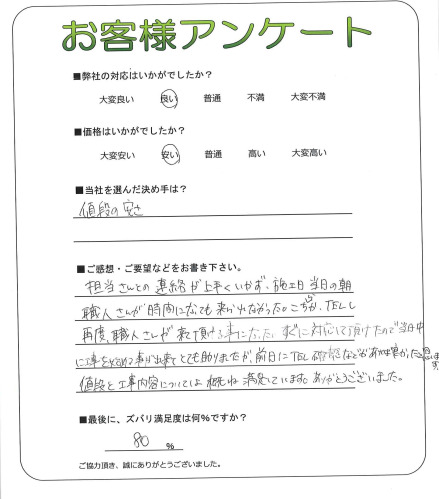 お客様アンケート
■弊社の対応はいかがでしたか？
大変良い 良い 普通 不満 大変不満
■価格はいかがでしたか？
大変安い 安い 普通 高い 大変高い
■当社を選んだ決め手は？
値段の安さ
■ご感想・ご要望などをお書き下さい。
担当さんとの連絡が上手くいかず、施工日当日の朝
職人さんが時間になっても来られなかった。こちらからTELし
再度、職人さんが来て頂ける事になった。すぐに対応して頂けたので当日中
に工事を始める事が出来てとても助りましたが、前日にTEL確認などがあれば良かったと思います。
値段と工事内容については概ね満足しています。ありがとうございました。
■最後に、ズバリ満足度は何％ですか？
80 ％
ご協力頂き、誠にありがとうございました。